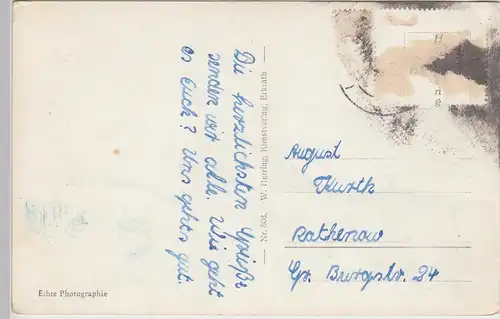 Die herzlichsten Grüße
senden wir alle. Wie geht
es Euch? Uns geht's gut.
Nr. 508. W. Herring, Kunstverlag, Erkrath
August
Kurth
Rathenow
Gr. Burgstr. 24
Echte Photographie